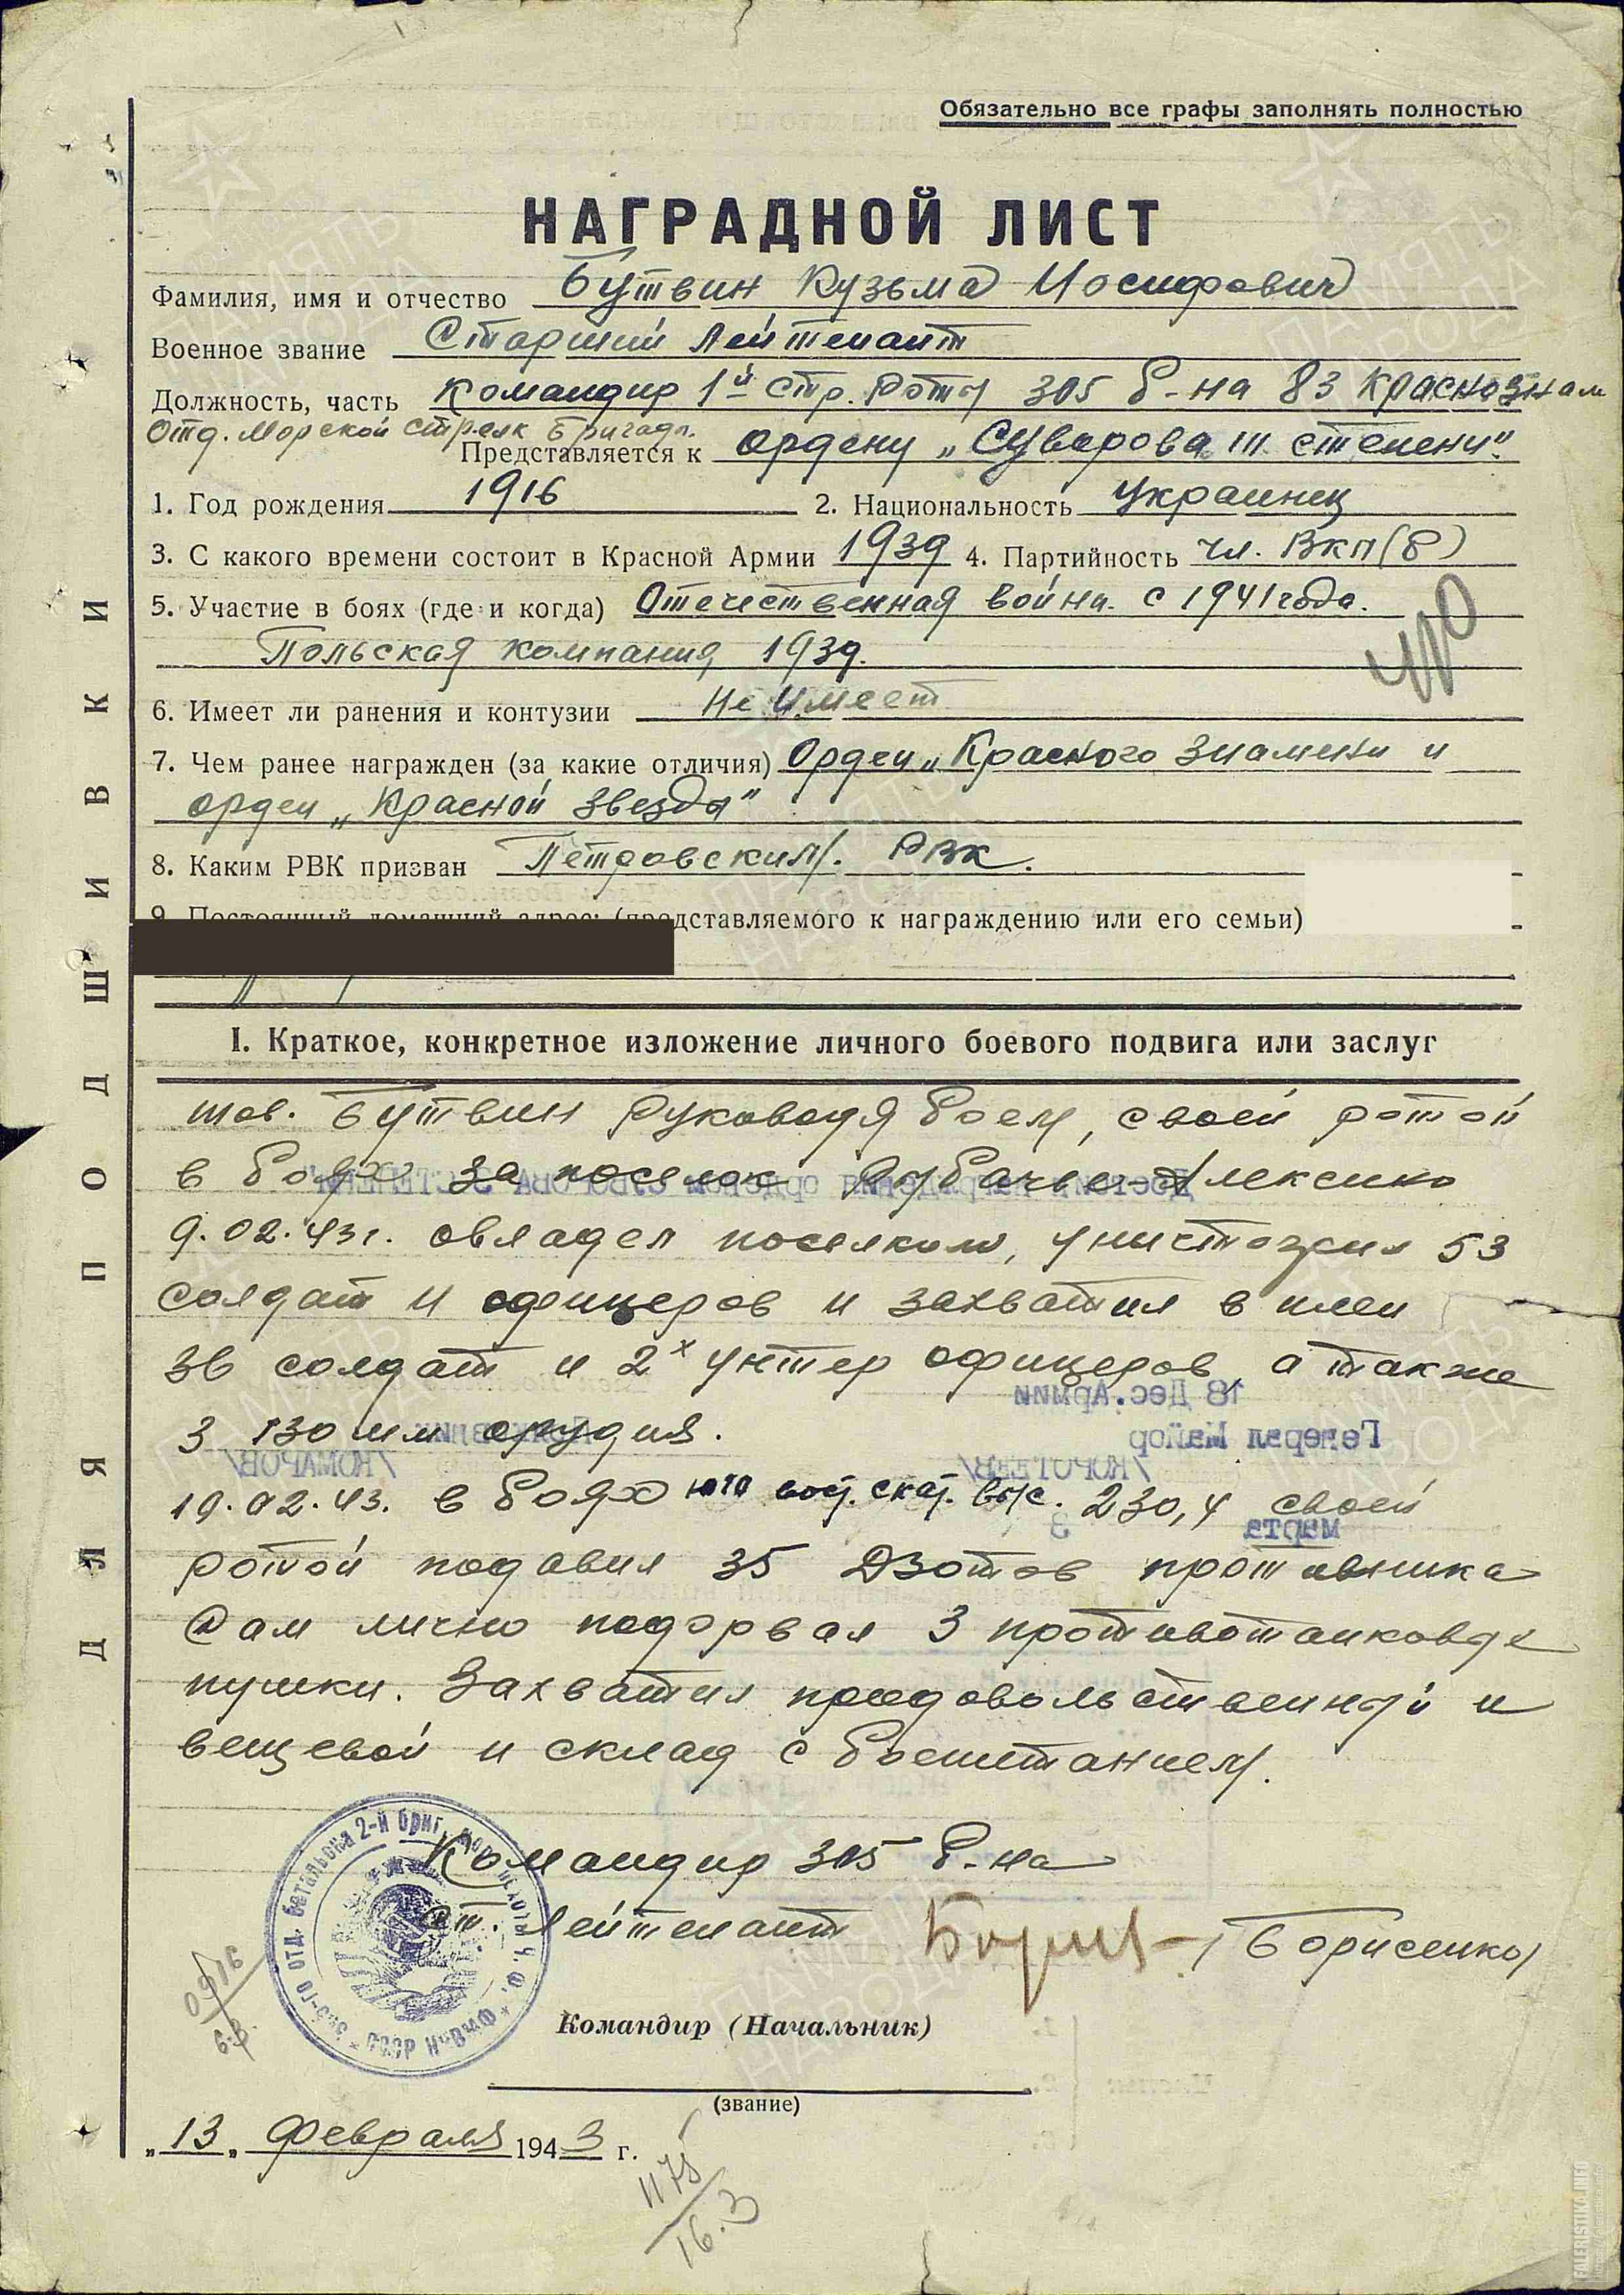 Обязательно все графы заполнять полностью
НАГРАДНОЙ ЛИСТ
Фамилия, имя и отчество Бутвин Кузьма Иосифович
Военное звание Старший Лейтенант
Должность, часть Командир 1й стр. роты 305 б-на 83 Краснознам
Отд. Морской стрелк бригады.
Представляется к ордену „Суворова III степени".
1. Год рождения 1916 2. Национальность Украинец
3. С какого времени состоит в Красной Армии 1939 4. Партийность чл. ВКП(б)
5. Участие в боях (где и когда) Отечественная война. с 1941 года.
Польская компания 1939.
6. Имеет ли ранения и контузии Не имеет
7. Чем ранее награжден (за какие отличия) Орден „Красного Знамени и
орден „Красной Звезды"
8. Каким РВК призван Петровским. РВК.
9. Постоянный домашний адрес: (представляемого к награждению или его семьи)
I. Краткое, конкретное изложение личного боевого подвига или заслуг
тов. Бутвин руководя боем, своей ротой
в боях за поселок Алексино
9.02.43г. овладел поселком, уничтожил 53
солдат и офицеров и захватил в плен
36 солдат и 2х унтер офицеров, а также
3 130 мм орудия.
19.02.43. в боях юго вост. скат. выс. 230,4 своей
ротой подавил 35 Дзотов противника
Сам лично подорвал 3 противотанковые
пушки. Захватил продовольственный и
вещевой и склад с боепитанием.
Командир 305 б-на
ст. Лейтенант (Борисенко)
Командир (Начальник)
(звание)
„13„ Февраля 1943 г.
1175
16.3
ДЛЯ ПОДШИВКИ
18 Дес. Армии
Генерал Майор
/КОРОТЕЕВ/
/КОМАРОВ/
3 марта
305-го отд. батальона 2-й бриг. мор. пехоты Ч. Ф.
СССР НКВМФ
ПАМЯТЬ НАРОДА
FALERISTIKA.INFO